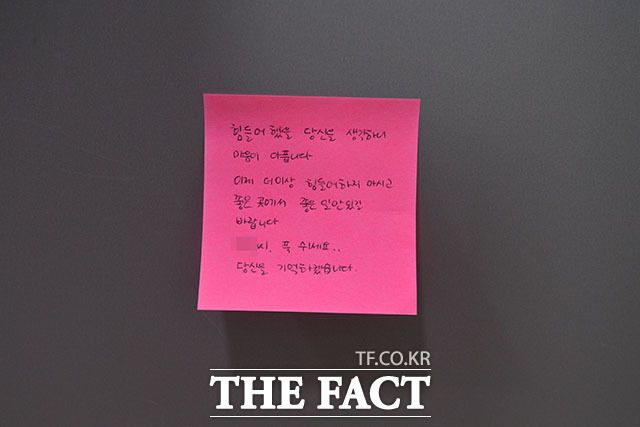 힘들어했을 당신을 생각하니
마음이 아픕니다
이제 더이상 힘들어하지 마시고
좋은 곳에서 좋은 일만 있길
바랍니다
씨. 푹 쉬세요..
당신을 기억하겠습니다.
TF.CO.KR
THE FACT